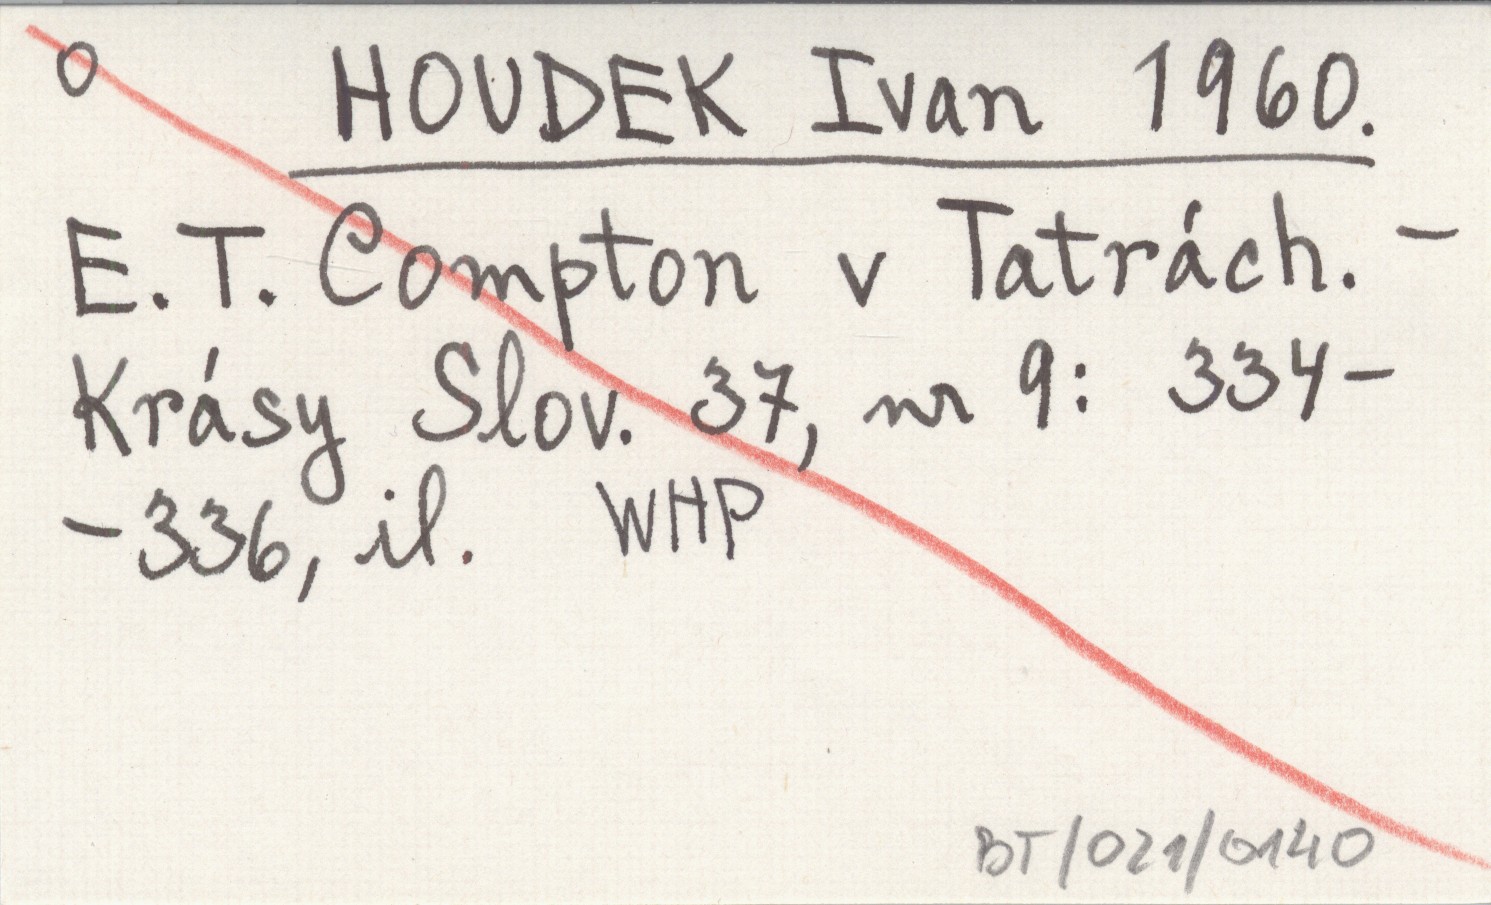 O HOUDEK Ivan 1960.
E.T. Compton v Tatrách. -
Krásy Slov. 37, nr 9: 334-
-336, il. WHP
BT/021/0140